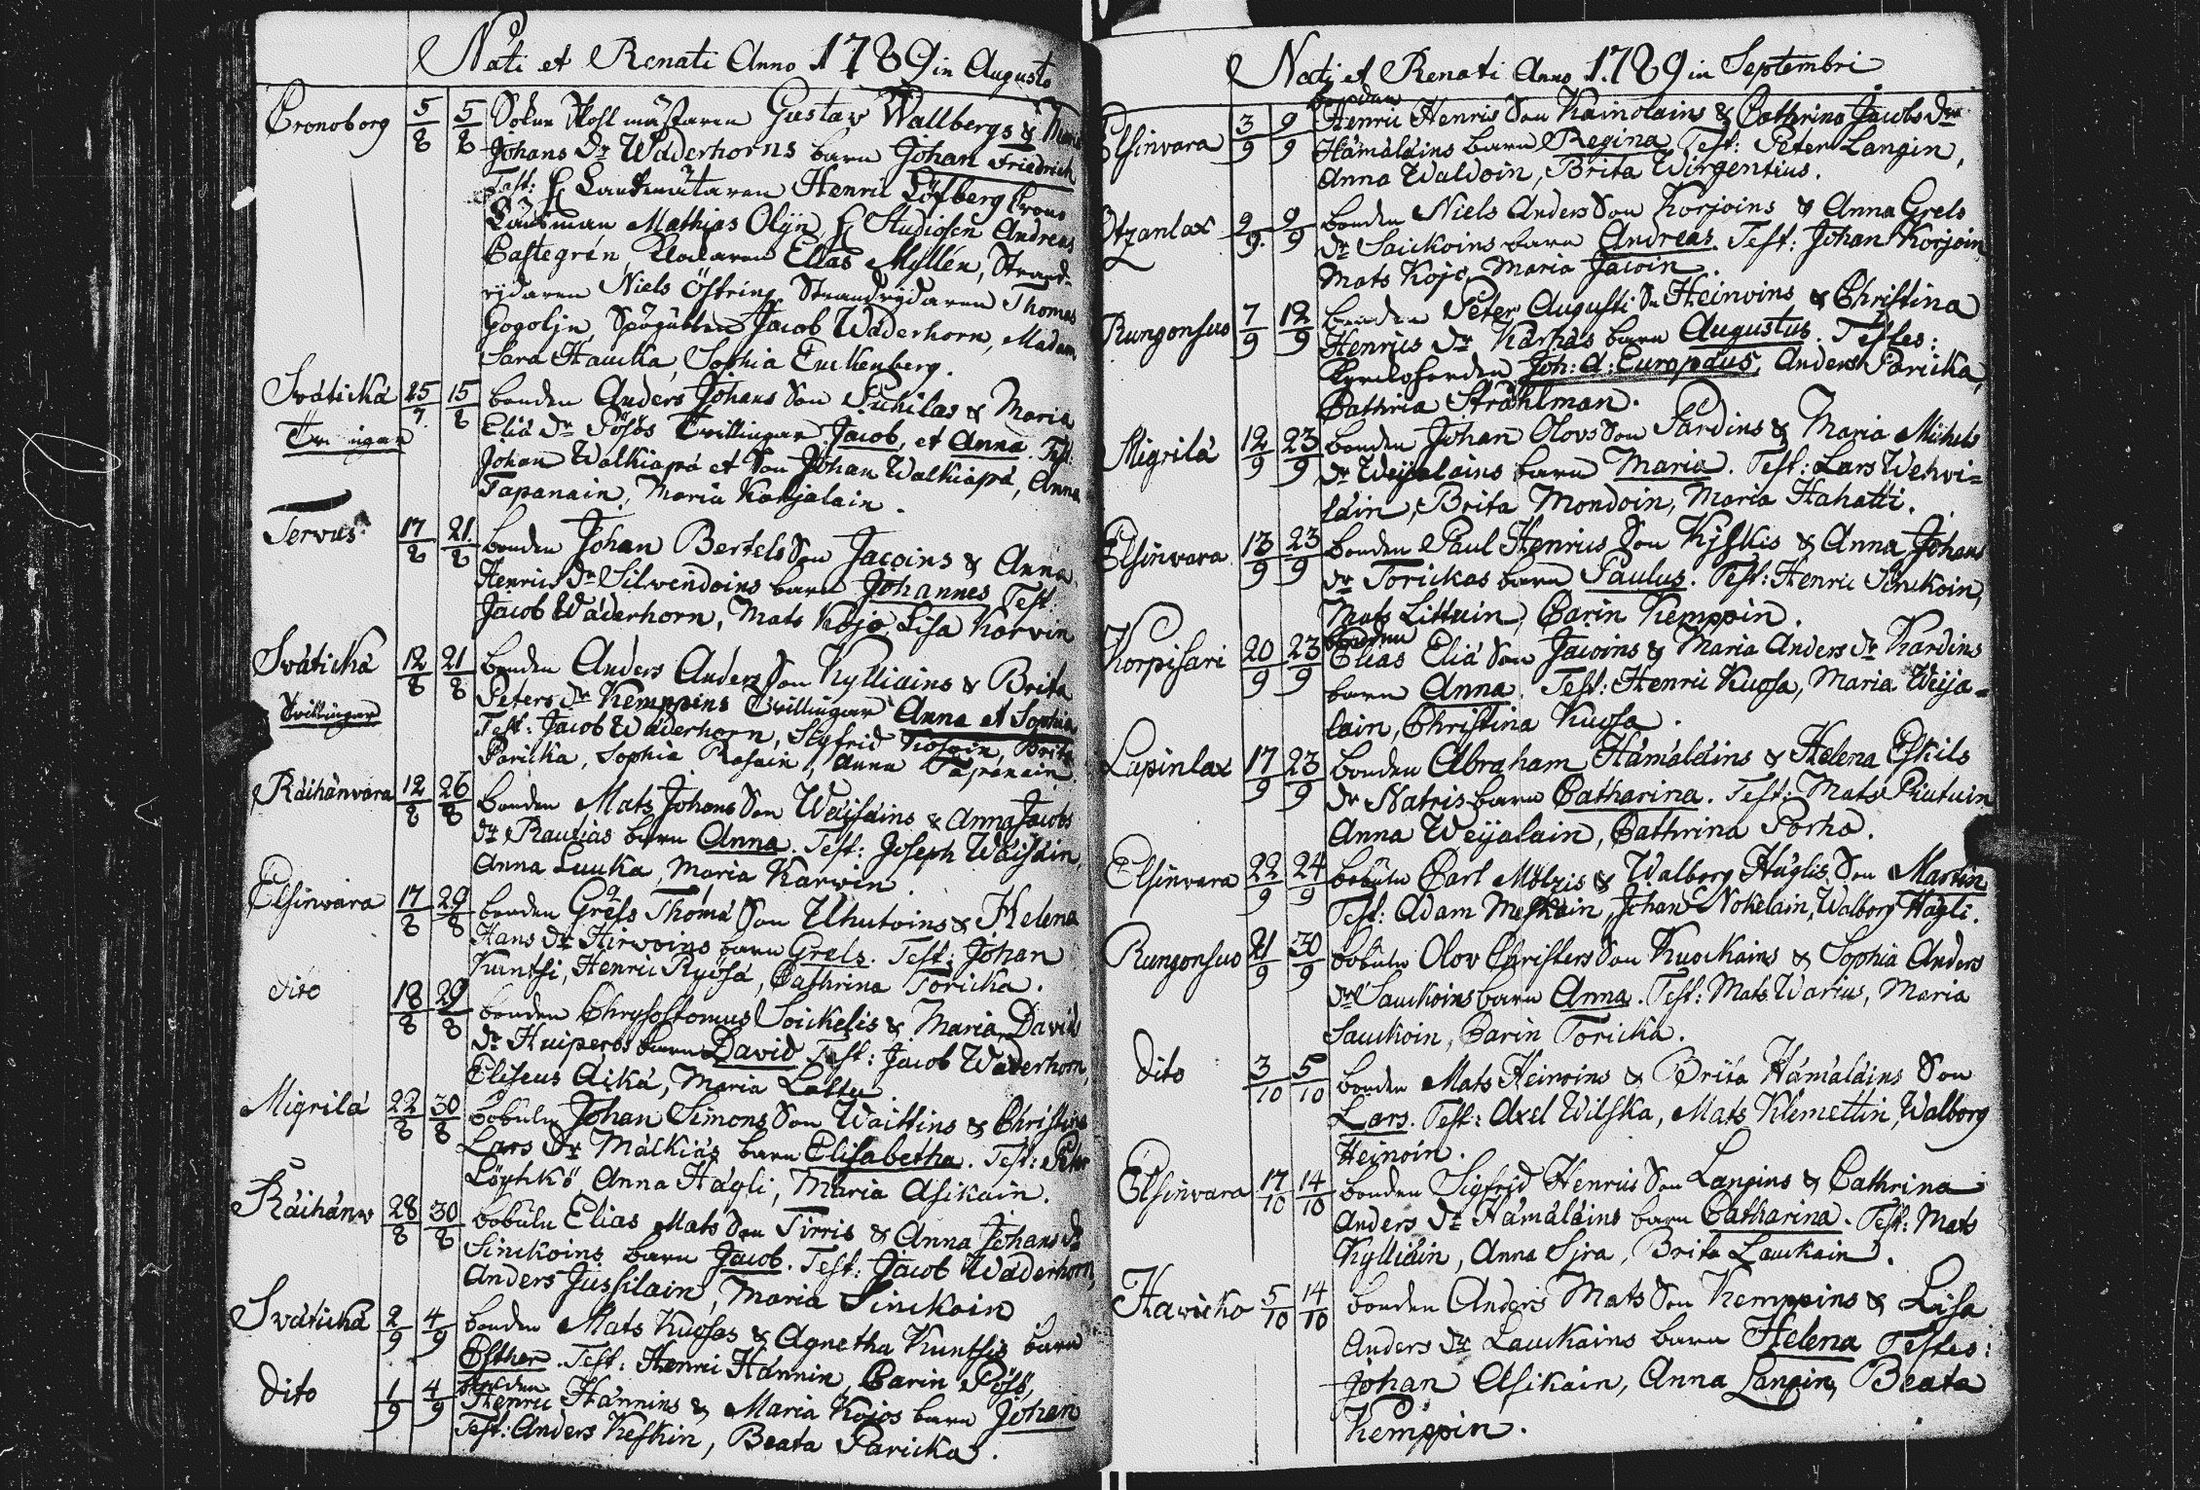 Nati et Renati Anno 1789 in Augusto
Cronoborg 5/8 5/8 Gustav Wallbergs &
Johans Dr Wäderhorns barn Johan Friedrich
Test: Landtmätaren Henric Löfberg Crono
Länsman Mathias Olÿn, Studiosen Andreas
Castegrén Klockaren Elias Myllén, Strand-
rÿdaren Niels Östring Strandrÿdaren Thomas
Gogolin, Jacob Wäderhorn, Madam
Sara Haucka, Sophia Enckenberg.
Sväticka 25/7 15/8 bonden Anders Johans Son Suikilas & Maria
Eliä Dr Pösös Tvillingar Jacob, et Anna. Test:
Johan Walkiapä et Son Johan Walkiapä, Anna
Tapanain, Maria Karjalain.
Tervus 17/8 21/8 bonden Johan Bertels Son Jacoins & Anna
Henrics Dr Silvendoins barn Johannes Test:
Jacob Wäderhorn, Mats Kojo, Lisa Korvin
Sväticka 12/8 21/8 bonden Anders Anders Son Kylliäins & Brita
Tvillingar Peters Dr Kemppins Tvillingar Anna et Sophia
Test: Jacob Wäderhorn, Sigfrid Kosoin, Brita
Paricka, Sophia Rasain, Anna Tapanain.
Räihänvara 12/8 26/8 bonden Mats Johans Son Wäisäins & Anna Jacobs
Dr Rautias barn Anna. Test: Joseph Wäisäin,
Anna Luuka, Maria Karwin.
Elsinvara 17/8 29/8 bonden Grels Thomä Son Uhutoins & Helena
Hans Dr Hirvoins barn Grels. Test: Johan
Kuntsi, Henric Ryösä, Cathrina Toricka.
dito 18/8 29/8 bonden Chrysostomus Soickelis & Maria Davids
Dr Huiperos barn David Test: Jacob Wäderhorn,
Eliseus Aikä, Maria Lattu
Migrilä 22/8 30/8 bobuln Johan Simons Son Waittins & Christina
Lars Dr Mälkiäs barn Elisabetha. Test: Peter
Löyhkö Anna Hägli, Maria Asikain.
Räihänv 28/8 30/8 bobuln Elias Mats Son Tirris & Anna Johans Dr
Sinckoins barn Jacob. Test: Jacob Wäderhorn,
Anders Jussilain, Maria Sinckoin
Sväticka 2/9 4/9 bonden Mats Kuosas & Agnetha Kuntsis barn
Esther. Test: Henric Hännin, Carin Pösö,
dito 1/9 4/9 bonden
Henric Hännins & Maria Kojos barn Johan
Test: Anders Keskin, Beata Paricka.
Nati et Renati Anno 1789 in Septembri
bonden
Elsinvara 3/9 9/9 Henric Henrics Son Kainolains & Cathrina Jacobs Dr
Hämäläins barn Regina Test: Peter Langin,
Anna Waldoin, Brita Wirgentius.
Otzanlax 2/9 9/9 bonden Niels Anders Son Korjoins & Anna Grels
Dr Sauckoins barn Andreas. Test: Johan Korjoin,
Mats Kojo, Maria Jacoin.
Rungonsuo 7/9 12/9 bonden Peter Augusti Sn Heinoins & Christina
Henrics Dr Kärhäs barn Augustus. Testes:
Kyrckoherden Joh: A: Europäus, Anders Paricka,
Cathria Strählman.
Migrilä 12/9 23/9 bonden Johan Olovs Son Pardins & Maria Michels
Dr Weijalains barn Maria. Test: Lars Wehvi-
läin, Brita Mondoin, Maria Hahatti.
Elsinvara 13/9 23/9 bonden Paul Henrics Son Kiskis & Anna Johans
Dr Torickas barn Paulus. Test: Henric Sinckoin,
Mats Littuin, Carin Kemppin.
bonden
Korpisari 20/9 23/9 Elias Eliä Son Jacoins & Maria Anders Dr Kardins
barn Anna. Test: Henric Kuosa, Maria Weija-
lain, Christina Kuosa.
Lapinlax 17/9 23/9 bonden Abraham Hämäläins & Helena Eskils
Dr Natris barn Catharina. Test: Mats Piutuin
Anna Weijalain, Cathrina Porka.
Elsinvara 22/9 24/9 bobuln Carl Mölzis & Walborg Häglis Son Martin
Test: Adam Meskain, Johan Nokelain, Walborg Hägli.
Rungonsuo 21/9 30/9 bobuln Olov Christers Son Kuockains & Sophia Anders
Dr Sauckoins barn Anna. Test: Mats Warius, Maria
Sauckoin, Carin Toricka.
dito 3/10 5/10 bonden Mats Heinoins & Brita Hämäläins Son
Lars. Test: Axel Wilska, Mats Klemettin, Walborg
Heinoin.
Elsinvara 17/10 14/10 bonden Sigfrid Henrics Son Langins & Cathrina
Anders Dr Hämäläins barn Catharina. Test: Mats
Kylliäin, Anna Sira, Brita Lauckain.
Havicko 5/10 14/10 bonden Anders Mats Son Kemppins & Lisa
Anders Dr Lauckains barn Helena Testes:
Johan Asikain, Anna Langin, Beata
Kemppin.